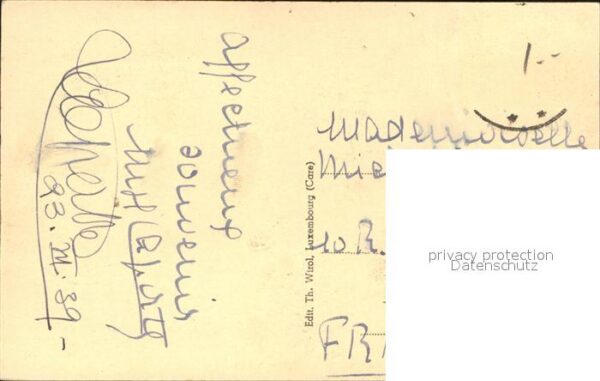 affectueux
souvenir
23.III.39 -
Edit. Th. Wirol, Luxembourg (Gare)
1.-
Mademoiselle
Mie
10 R.
FRA
privacy protection
Datenschutz